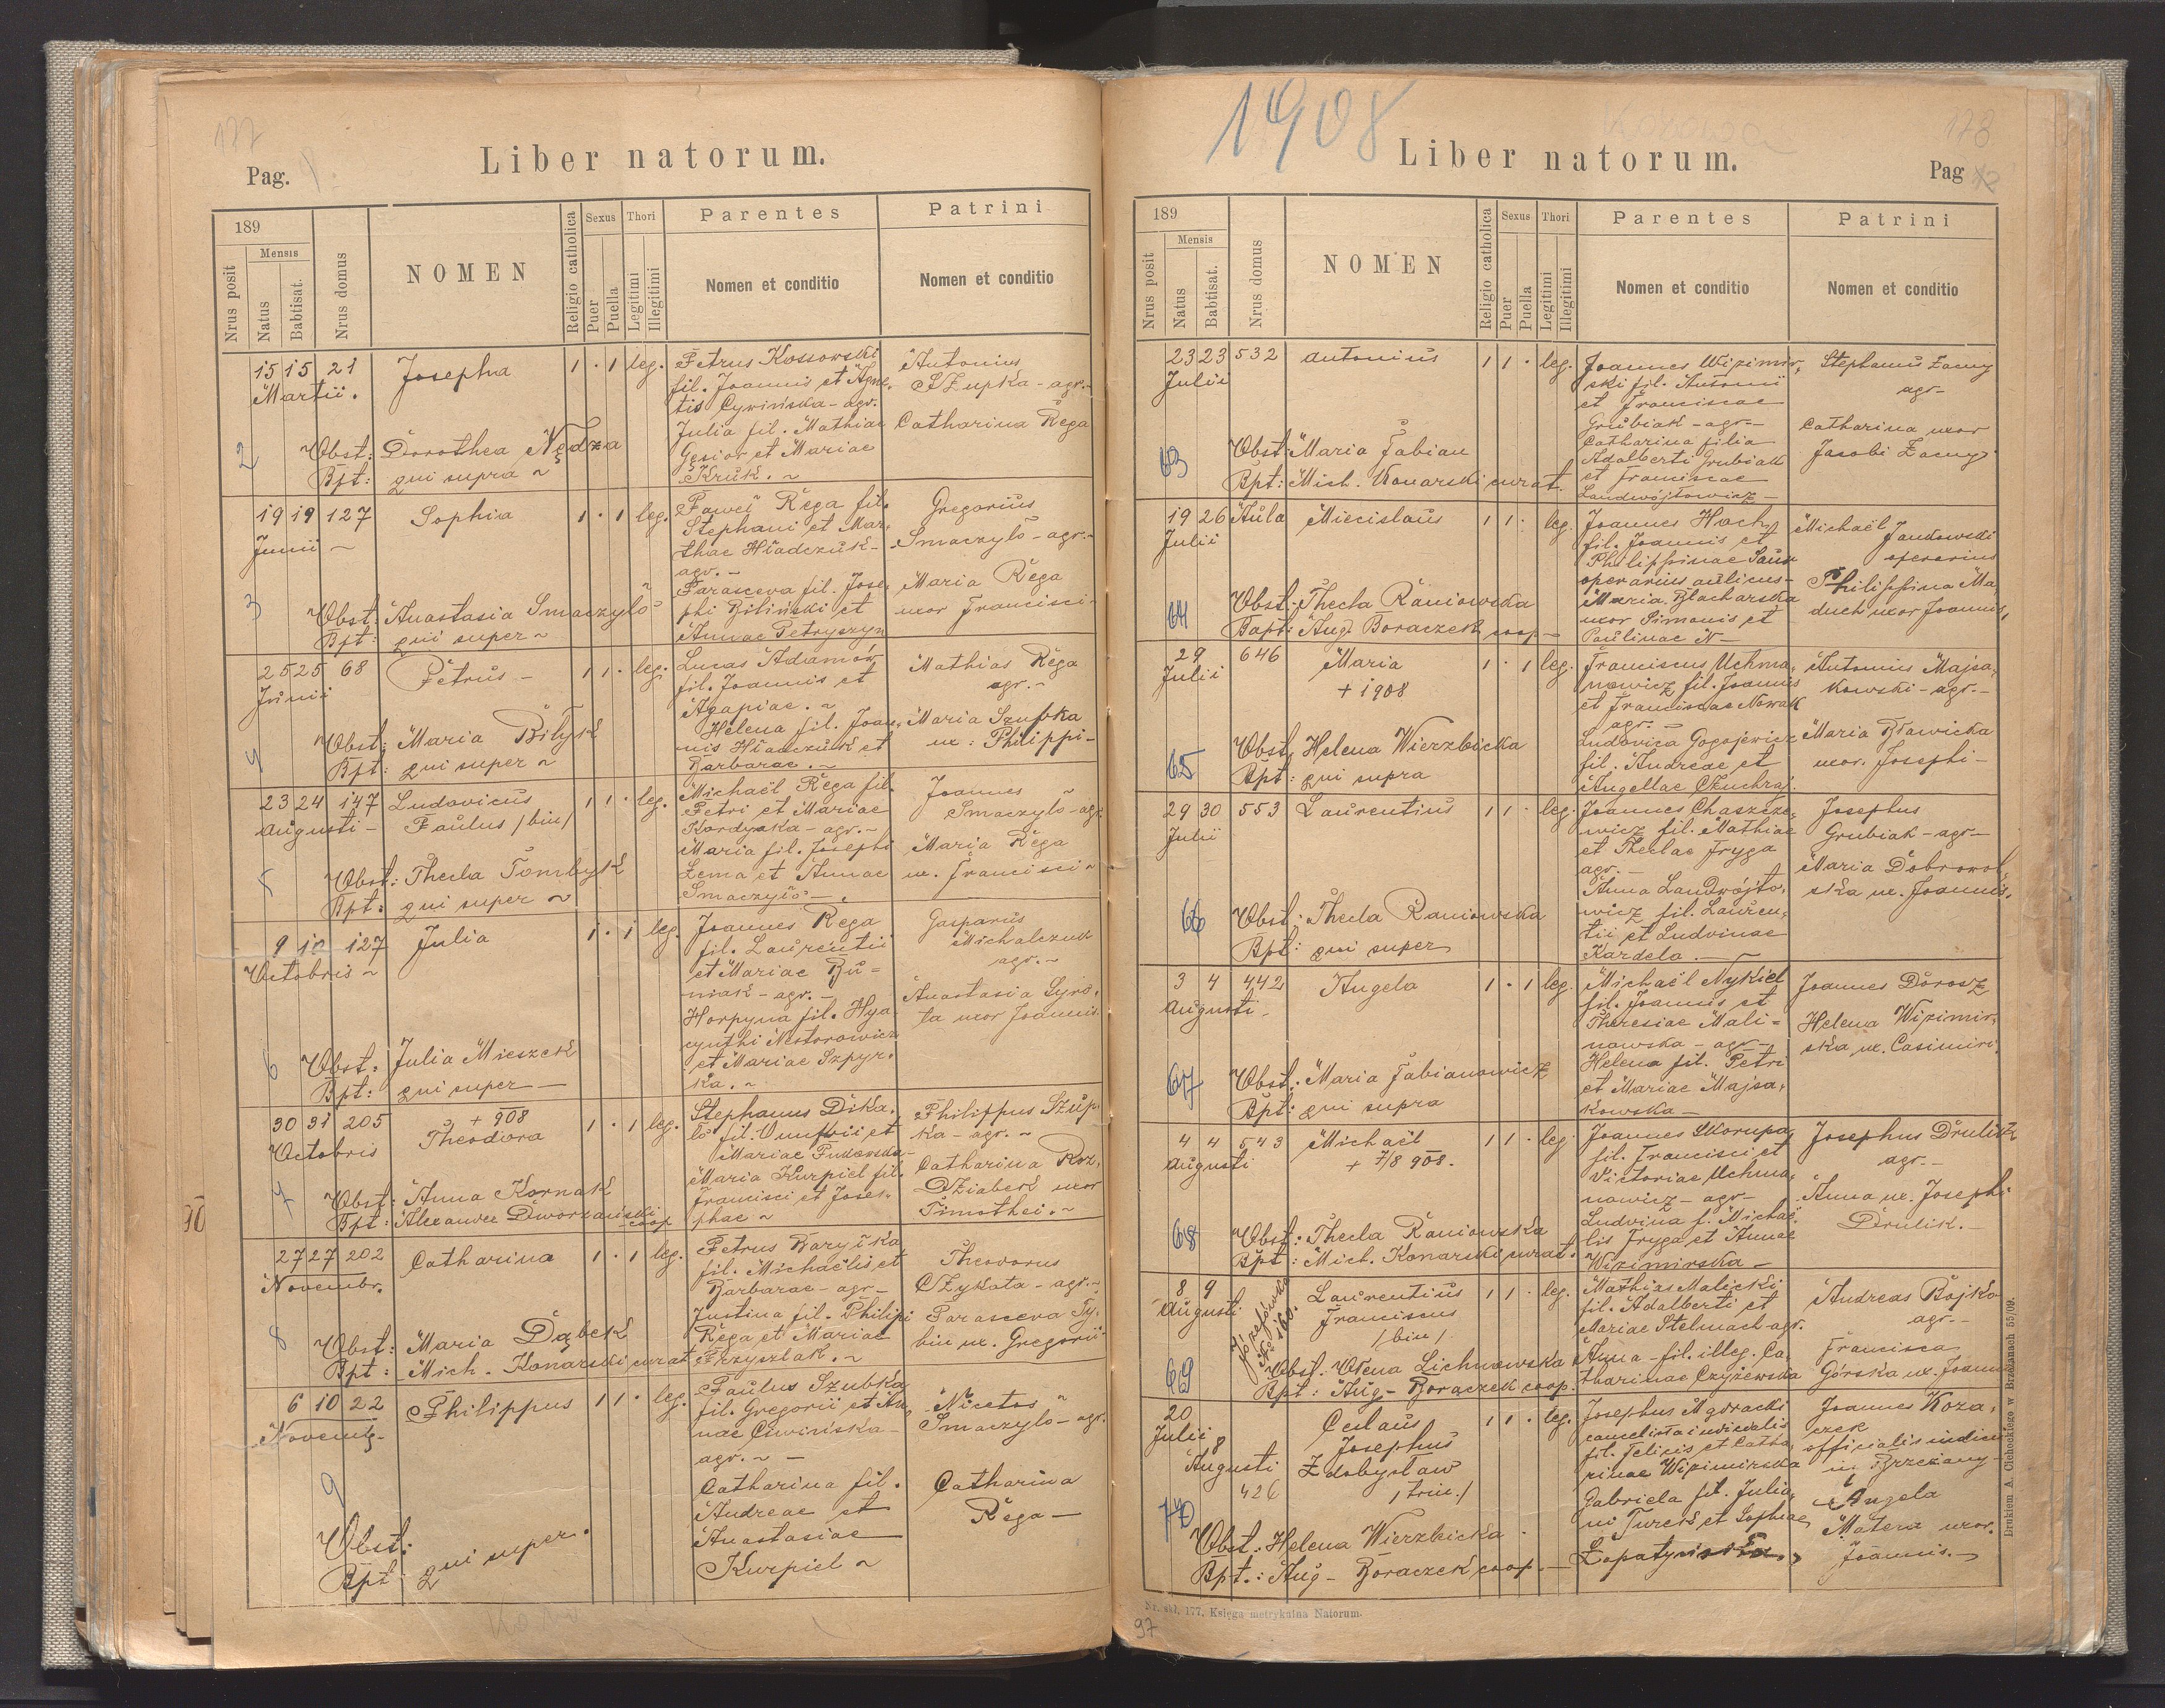 177
Pag. 1.
Liber natorum.
189
Mensis
Nrus posit
Natus
Babtisat.
Nrus domus
NOMEN
Religio catholica
Sexus
Puer
Puella
Thori
Legitimi
Illegitimi
Parentes
Nomen et conditio
Patrini
Nomen et conditio
2
15 15 21 Josepha 1 · 1 leg.
Martii.
Obst: Dorothea Nędza
Bpt: qui supra ~
Petrus Kossowski
fil. Joannis et Agne-
tis Cywińska - agr.
Julia fil. Mathiae
Gęsior et Mariae
Kruk. ~
Antonius
Szupka - agr. -
Catharina Rega
3
19 19 127 Sophia 1 · 1 leg.
Junii ~
Obst: Anastasia Smaczyło
Bpt: qui super ~
Paweł Rega fil.
Stephani et Mar-
thae Hładczuk -
agr. -
Parasceva fil. Jose-
phi Biliński et
Annae Petryszyn
Gregorius
Smaczyło - agr. -
Maria Rega
uxor Francisci -
4
25 25 68 Petrus - 1 1 · leg.
Junii
Obst: Maria Biłyk
Bpt: qui super ~
Lucas Adamów
fil. Joannis et
Agapiae. ~
Helena fil. Joan-
nis Hładczuk et
Barbarae. ~
Mathias Rega
agr. -
Maria Szupka
ux: Philippi -
5
23 24 147 Ludovicus 1 1 · leg.
Augusti - Paulus /bin/
Obst: Thecla Tombyk
Bpt: qui super ~
Michaël Rega fil.
Petri et Mariae
Kordyaka - agr. -
Maria fil. Josephi
Łema et Annae
Smaczyło -
Joannes
Smaczyło - agr.
Maria Rega
ux. Francisci ~
6
9 10 127 Julia 1 · 1 leg.
Octobris ~
Obst: Julia Mieszek
Bpt: qui super -
Joannes Rega
fil. Laurentii
et Mariae Bu-
niak - agr. -
Horpyna fil. Hya-
cynthi Nestorowicz
et Mariae Szpyr-
ka. ~
Gasparus
Michalczuk
agr. ~
Anastasia Syro-
ta uxor Joannis.
7
30 31 205 + 908 1 · 1 leg.
Octobris Theodora
Obst: Anna Kornak
Bpt: Alexander Dworzański
coop
Stephanus Dika-
ło fil. Onufrii et
Mariae
Maria Kurpiel fil.
Francisci et Jose-
phae ~
Philippus Szup-
ka - agr. ~
Catharina Roz-
dziabek uxor
Timothei. ~
8
27 27 202 Catharina 1 · 1 leg.
Novembr.
Obst: Maria Dąbek
Bpt: Mich. Konarski curat
Petrus Baryłka
fil. Michaëlis et
Barbarae - agr -
Justina fil. Philipi
Rega et Mariae
Przyszlak. ~
Theodorus
Czykata - agr. ~
Parasceva Ty-
bin ux. Gregorii -
9
6 10 22 Philippus 1 1 · leg.
Novemb.
Obst:
Bpt: qui super.
Paulus Szubka
fil. Gregorii et An-
nae Ciwińska -
agr. ~ -
Catharina fil.
Andreae et
Anastasiae
Kurpiel ~
Nicetas
Smaczyło - agr.
Catharina
Rega -
1908
178
Liber natorum.
Pag 2
189
Mensis
Nrus posit
Natus
Babtisat.
Nrus domus
NOMEN
Religio catholica
Sexus
Puer
Puella
Thori
Legitimi
Illegitimi
Parentes
Nomen et conditio
Patrini
Nomen et conditio
63
23 23 532 Antonius 1 1 · leg.
Julii
Obst: Maria Fabian
Bpt: Mich. Konarski curat.
Joannes Wizimir-
ski fil. Antonii
et Franciscae
Grubiak - agr. -
Catharina filia
Adalberti Grubiak
et Franciscae
Landwójtowicz -
Stephanus Zacny
agr -
Catharina uxor
Jacobi Zacny
64
19 26 Aula Miecislaus 1 1 · leg.
Julii
Obst: Thecla Raniowska
Bapt: Aug. Boraczek coop -
Joannes Hoch
fil. Joannis et
Philippinae
operarius aulicus -
Maria Blacharska
uxor Simonis et
Paulinae N -
Michaël Jandowski
operarius
Philippina Ma-
duch uxor Joannis,
65
29 646 Maria 1 · 1 leg.
Julii + 1908
Obst: Helena Wierzbicka
Bpt: qui supra
Franciscus Uchma-
nowicz fil. Joannis
et Franciscae Nowak
agr. -
Ludovica Gogojewicz
fil. Andreae et
Angellae Czuchraj.
Antonius Majsa-
kowski - agr. -
Maria Bławicka
uxor. Josephi -
66
29 30 553 Laurentius 1 1 · leg.
Julii
Obst: Thecla Raniowska
Bpt: qui super
Joannes Chaszcze-
wicz fil. Mathiae
et Theclae Fryga
agr. -
Anna Landwójto-
wicz fil. Lauren-
tii et Ludvinae
Kardela. -
Josephus
Grubiak - agr -
Maria Dobrowol-
ska ux. Joannis.
67
3 4 442 Angela 1 · 1 leg.
Augusti -
Obst: Maria Fabianowicz
Bpt: qui supra
Michaël Nykiel
fil. Joannis et
Theresiae Mali-
nowska - agr -
Helena fil. Petri
et Mariae Majsa-
kowska -
Joannes Dorosz
Helena Wizimir-
ska ux. Casimiri.
68
4 4 543 Michaël 1 1 · leg.
Augusti + 7/8 908.
Obst: Thecla Raniowska
Bpt: Mich. Konarski curat.
Joannes Skorupa
fil. Francisci et
Victoriae Uchma-
nowicz - agr -
Ludvina f. Michaë-
lis Fryga et Annae
Wizimirska -
Josephus Drulik
agr. -
Anna ux. Josephi
Drulik. -
69
8 9 Józefówka No 160. Laurentius 1 1 · leg.
Augusti Franciscus
/bin/
Obst: Olena Lichnowska
Bpt: Aug - Boraczek coop.
Mathias Malicki
fil. Adalberti et
Mariae Stelmach agr.
Anna - fil. illeg. Ca-
tharinae Czyżewska
Andreas Bojko
agr. -
Francisca
Górska ux. Joannis
70
20 Ceslaus 1 1 · leg.
Julii 8 Josephus
Augusti Zdobysław
426 /trin./
Obst: Helena Wierzbicka
Bpt.: Aug - Boraczek coop. -
Josephus Mgoracki
cancelista iudicialis
fil. Felicis et Catha-
rinae Wizimirska
Gabriela fil. Julia-
ni Turek et Sophiae
Łopatyńska.
Joannes Koza-
czek
officialis iudicii
in Brzeżany -
Angela
Matera uxor.
Joannis. -
Drukiem A. Cichockiego w Brzeżanach 55/09.
Nr. skl. 177. Księga metrykalna Natorum.
97